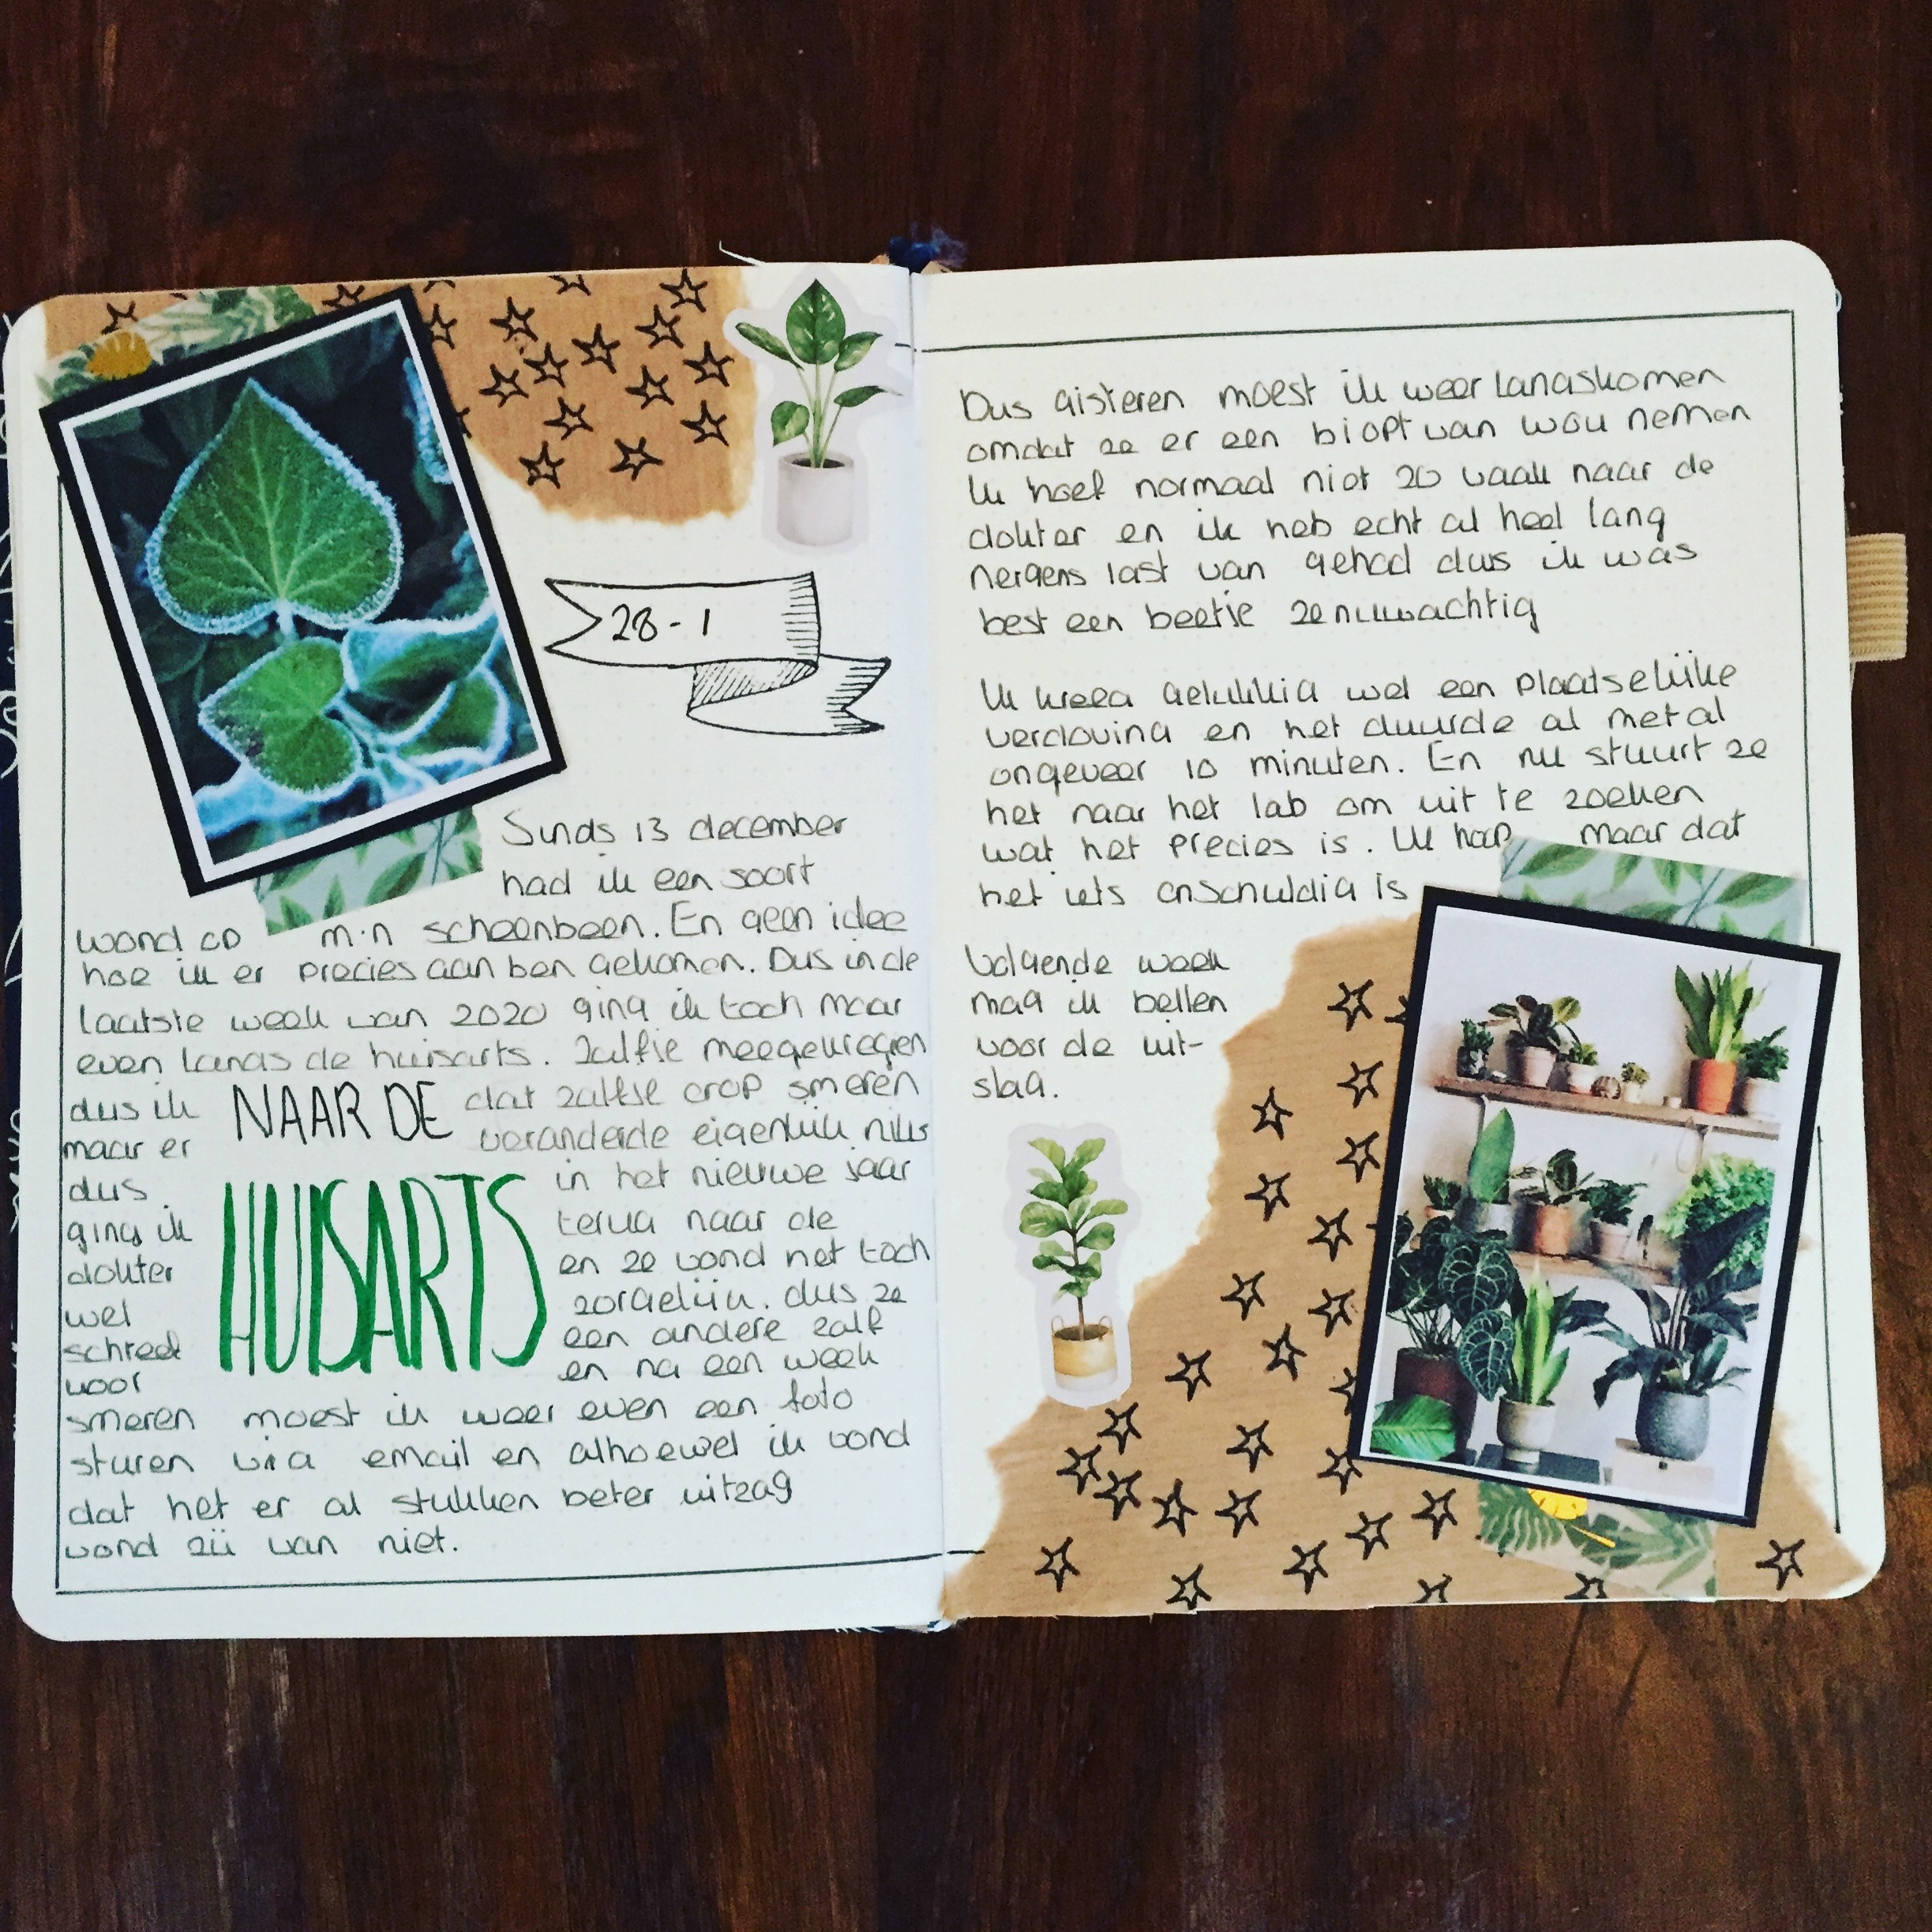 28-1
Sinds 13 december
had ik een soort
wond op m'n scheenbeen. En geen idee
hoe ik er precies aan ben gekomen. Dus in de
laatste week van 2020 ging ik toch maar
even langs de huisarts. Zalfje meegekregen
dus ik NAAR DE dat zalfje erop smeren
maar er veranderde eigenlijk niks
dus in het nieuwe jaar
HUISARTS
ging ik terug naar de
dokter en ze vond het toch
wel zorgelijk. dus ze
schreef een andere zalf
voor en na een week
smeren moest ik weer even een foto
sturen via email en alhoewel ik vond
dat het er al stukken beter uitzag
vond zij van niet.
Dus gisteren moest ik weer langskomen
omdat ze er een biopt van wou nemen
Ik hoef normaal niet zo vaak naar de
dokter en ik heb echt al heel lang
nergens last van gehad dus ik was
best een beetje zenuwachtig
Ik kreeg gelukkig wel een plaatselijke
verdoving en het duurde al met al
ongeveer 10 minuten. En nu stuurt ze
het naar het lab om uit te zoeken
wat het precies is. Ik hoop maar dat
het iets onschuldig is
Volgende week
mag ik bellen
voor de uit-
slag.